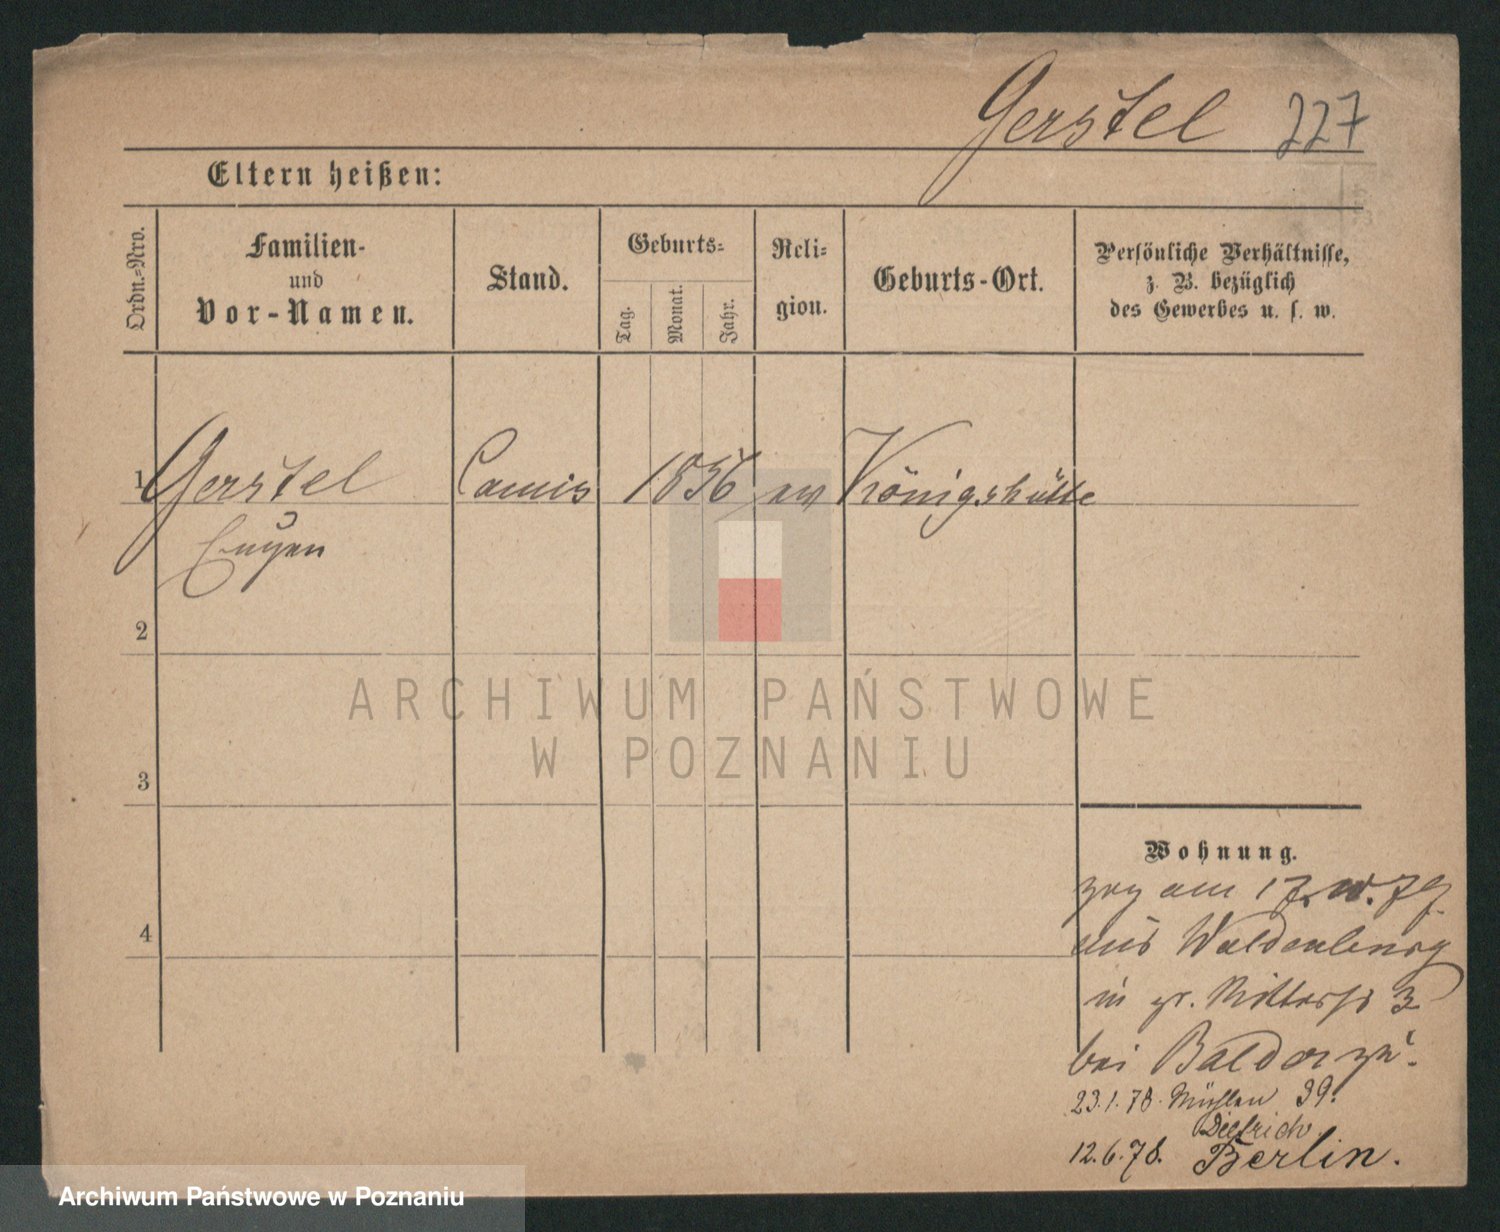 Gerstel 227
Eltern heißen:
Ordn.-Nro.
Familien-
und
Vor-Namen.
Stand.
Geburts-
Tag.
Monat.
Jahr.
Reli-
gion.
Geburts-Ort.
Persönliche Verhältnisse,
z. B. bezüglich
des Gewerbes u. s. w.
1 Gerstel Comis 1856 ev Königshütte
Eugen
2
ARCHIWUM PAŃSTWOWE
W POZNANIU
3
Wohnung.
zog am
4
aus Waldenburg
in gr. Ritterstr 3
bei Balder zu.
23.1.78. Mühlen 39.
Dietrich
12.6.78. Berlin.
Archiwum Państwowe w Poznaniu